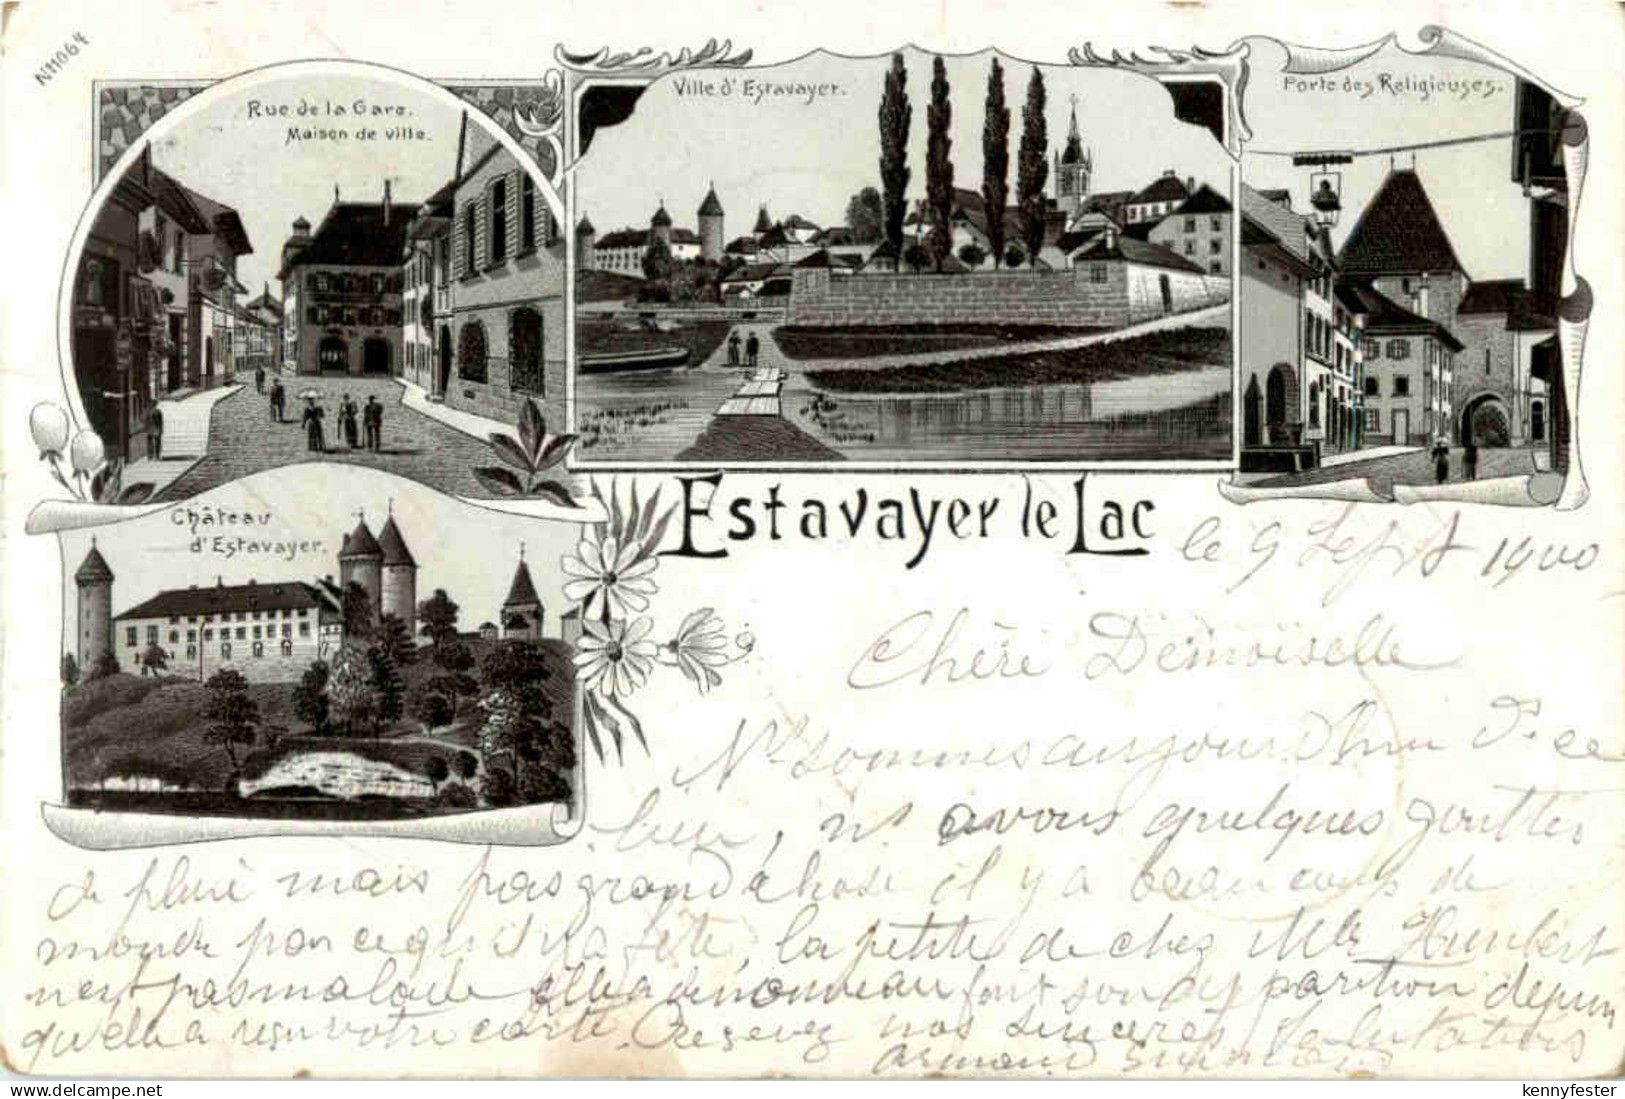 Nº11064
Rue de la Gare.
Maison de ville.
Ville d'Estavayer.
Porte des Religieuses.
Château
d'Estavayer.
Estavayer le Lac
le 9 Sept 1900
Chère Demoiselle
Ns sommes aujourdhui ds ce
lieu, ns avons quelques gouttes
de pluie mais pas grand chose il y a beaucoups de
monde parcequ'il y a fête, la petite de chez Mlle Humbert
n'est pas malade elle a de nouveau fait son apparition depuis
quelle a reçu votre carte. Recevez nos sincères salutations
Armand
delcampe.net
kennyfester